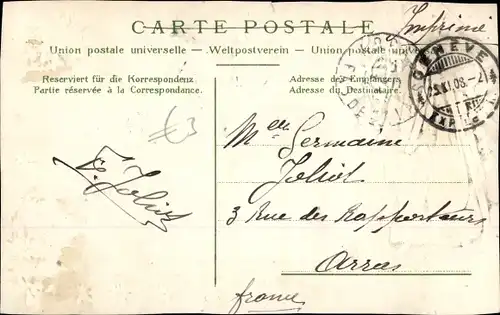 CARTE POSTALE
Imprimé
Union postale universelle – Weltpostverein – Unione postale
Reserviert für die Korrespondenz
Partie réservée à la Correspondance.
Adresse des Empfängers
Adresse du Destinataire.
GENÈVE
EXP.
Melle Germaine
Joliot
3 Rue des Rapporteurs
Arras
france
G. Joliot